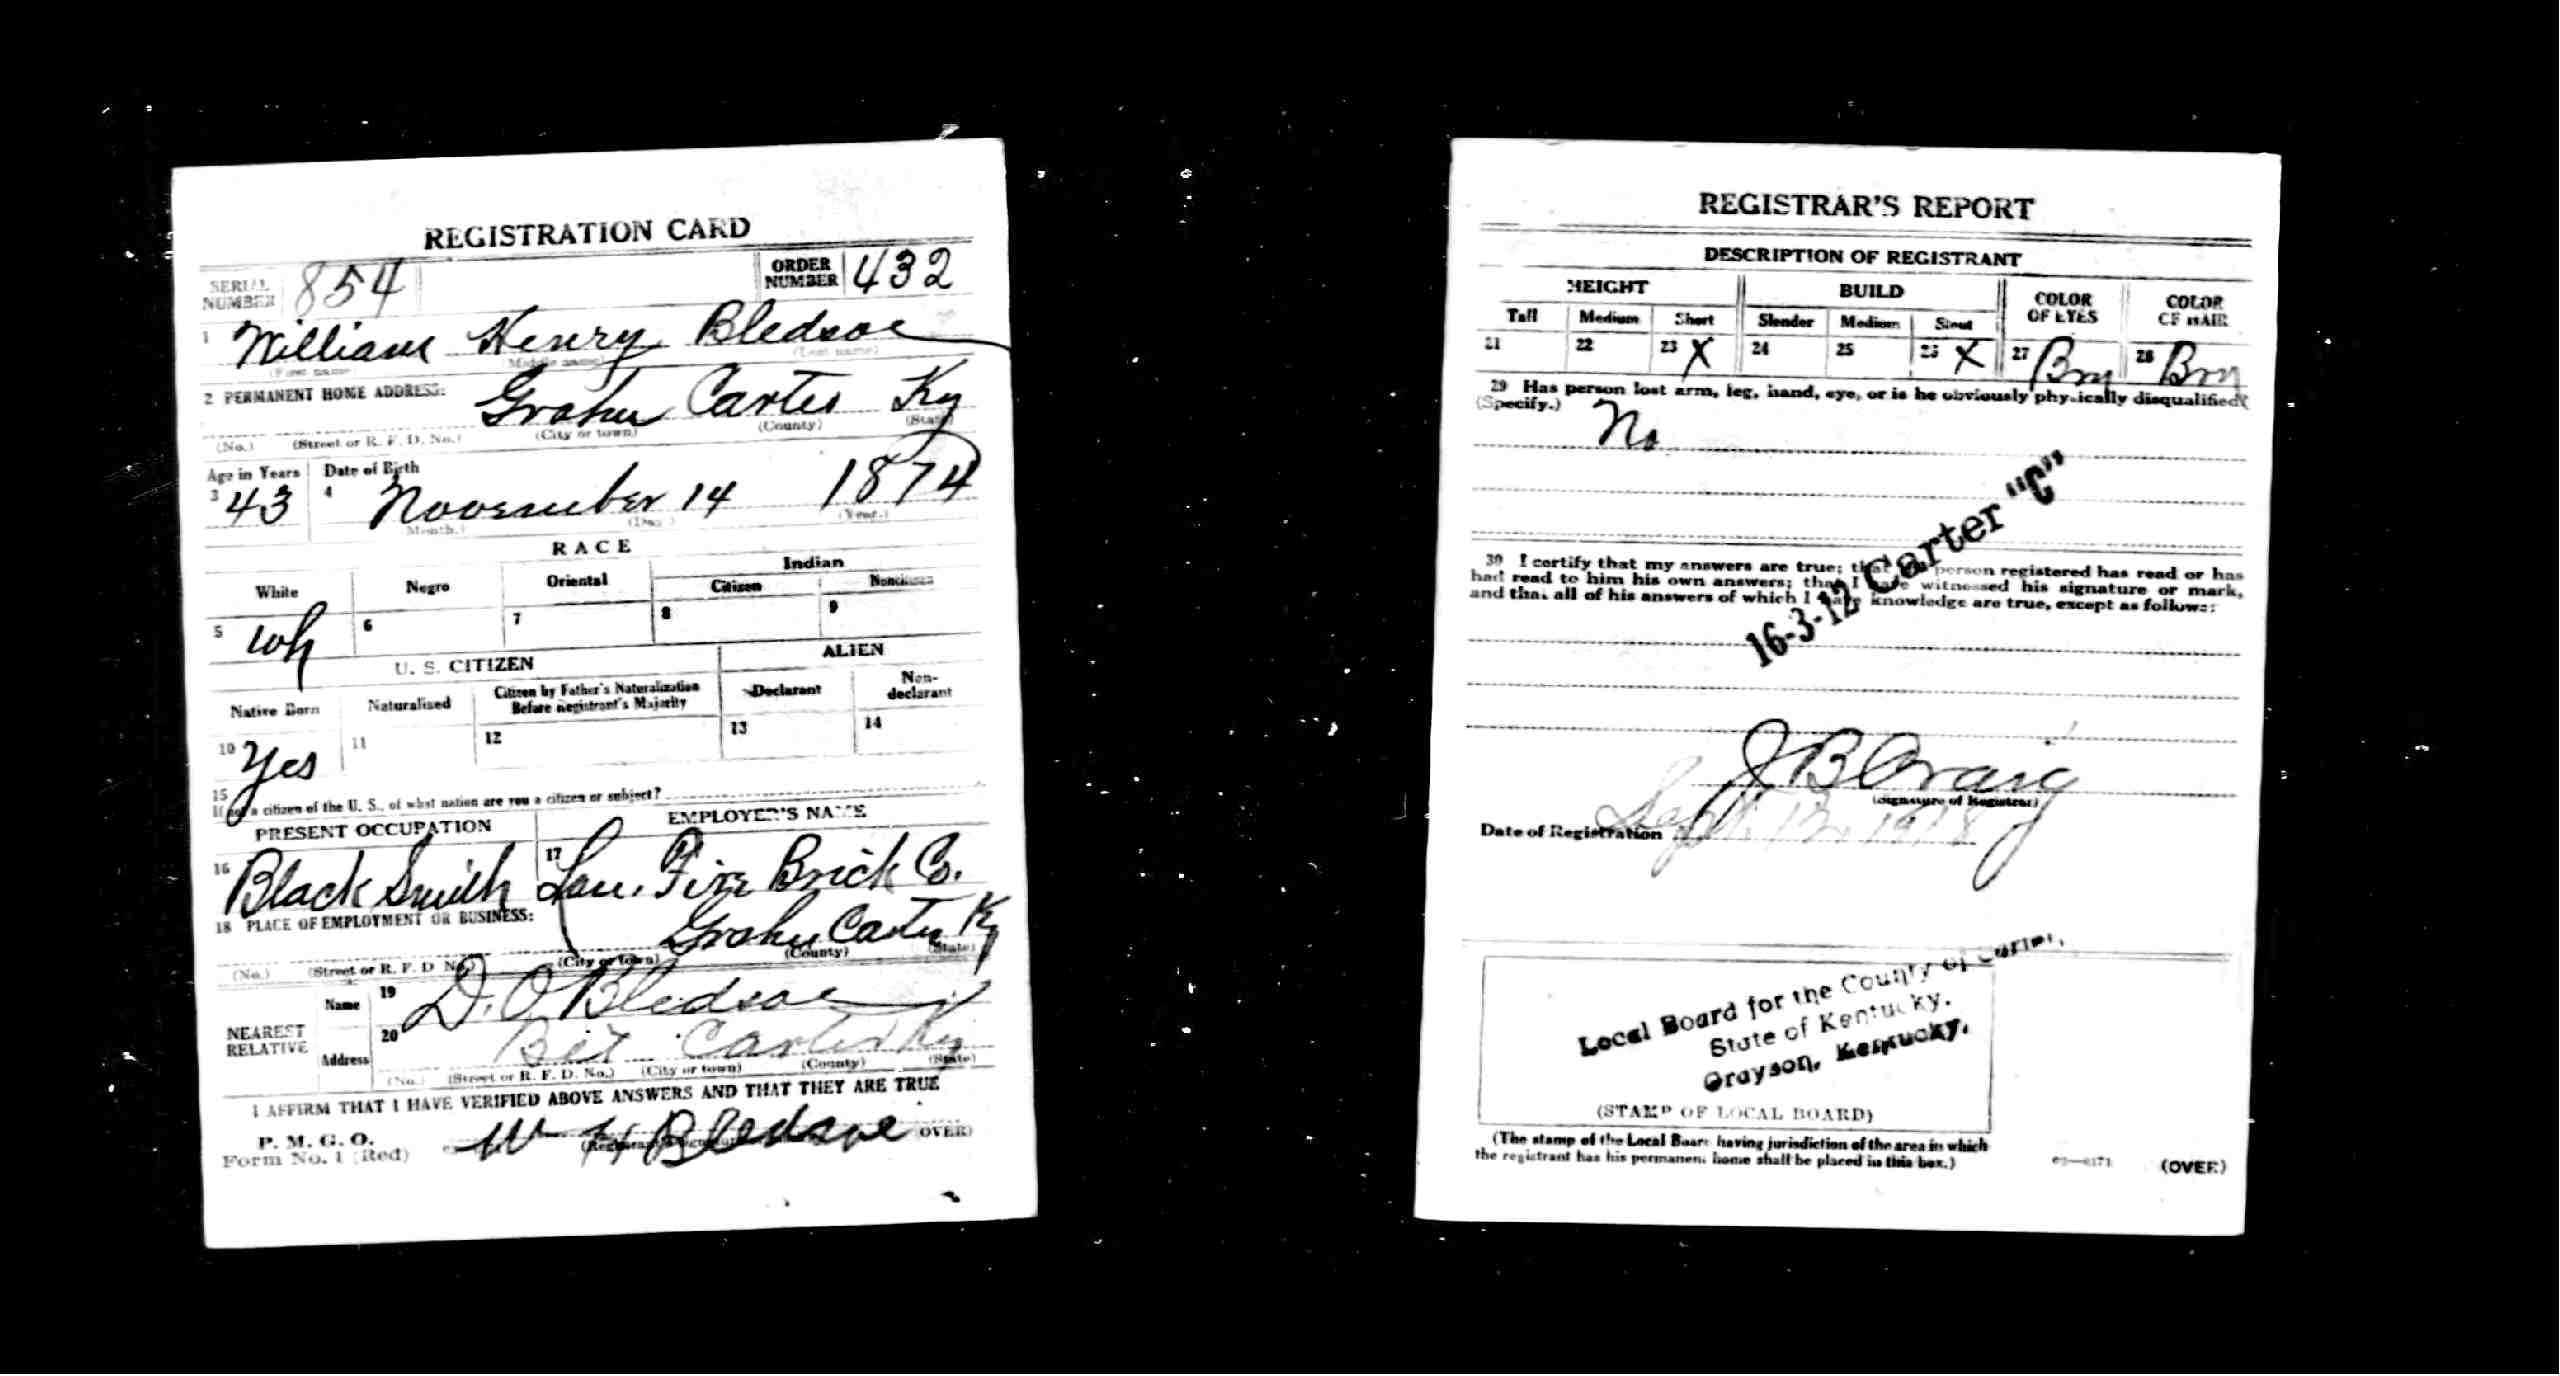 REGISTRATION CARD
SERIAL NUMBER 854 ORDER NUMBER 432
1 William Henry Bledsoe
(First name) (Middle name) (Last name)
2 PERMANENT HOME ADDRESS:
Grahn Carter Ky
(No.) (Street or R. F. D. No.) (City or town) (County) (State)
Age in Years Date of Birth
3 43 4 November 14 1874
(Month.) (Day.) (Year.)
RACE
White Negro Oriental Indian
Citizen Noncitizen
5 wh 6 7 8 9
U. S. CITIZEN ALIEN
Native Born Naturalized Citizen by Father's Naturalization Before Registrant's Majority Declarant Non-declarant
10 Yes 11 12 13 14
15 If not a citizen of the U. S., of what nation are you a citizen or subject?
PRESENT OCCUPATION EMPLOYER'S NAME
16 Black Smith 17 Lou. Fire Brick Co.
18 PLACE OF EMPLOYMENT OR BUSINESS:
Grahn Carter Ky
(No.) (Street or R. F. D. No.) (City or town) (County) (State)
NEAREST RELATIVE
Name 19 D. O Bledsoe
Address 20 Carter Ky
(No.) (Street or R. F. D. No.) (City or town) (County) (State)
I AFFIRM THAT I HAVE VERIFIED ABOVE ANSWERS AND THAT THEY ARE TRUE
P. M. G. O.
Form No. 1 (Red) W H Bledsoe (OVER)
REGISTRAR'S REPORT
DESCRIPTION OF REGISTRANT
HEIGHT BUILD COLOR OF EYES COLOR OF HAIR
Tall Medium Short Slender Medium Stout
21 22 23 X 24 25 26 X 27 Brn 28 Brn
29 Has person lost arm, leg, hand, eye, or is he obviously physically disqualified?
(Specify.)
No
30 I certify that my answers are true; that the person registered has read or has
had read to him his own answers; that I have witnessed his signature or mark,
and that all of his answers of which I have knowledge are true, except as follows:
16-3-12 Carter "C"
J B Craig
(Signature of Registrar)
Date of Registration Sept. 12, 1918
Local Board for the County of Carter,
State of Kentucky.
Grayson, Kentucky.
(STAMP OF LOCAL BOARD)
(The stamp of the Local Board having jurisdiction of the area in which
the registrant has his permanent home shall be placed in this box.)
(OVER)